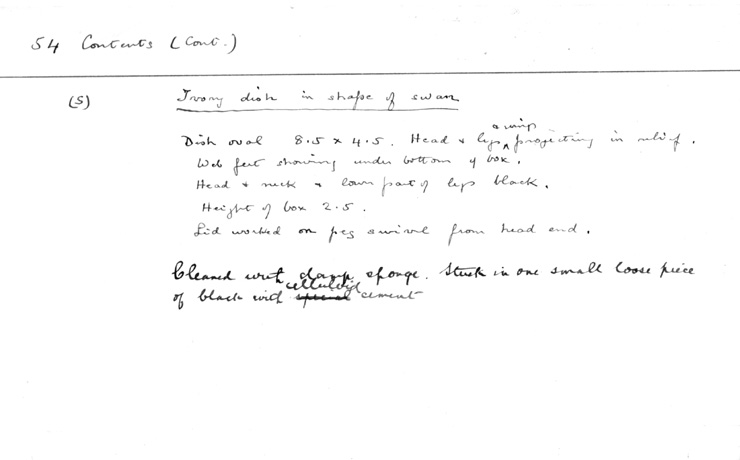 54 Contents (Cont.)
(S) Ivory dish in shape of swan
Dish oval 8.5 x 4.5. Head & legs & wings projecting in relief.
Web feet showing under bottom of box.
Head & neck & lower part of legs black.
Height of box 2.5.
Lid worked on peg swivel from head end.
Cleaned with damp sponge. Stuck in one small loose piece
of black with special celluloid cement